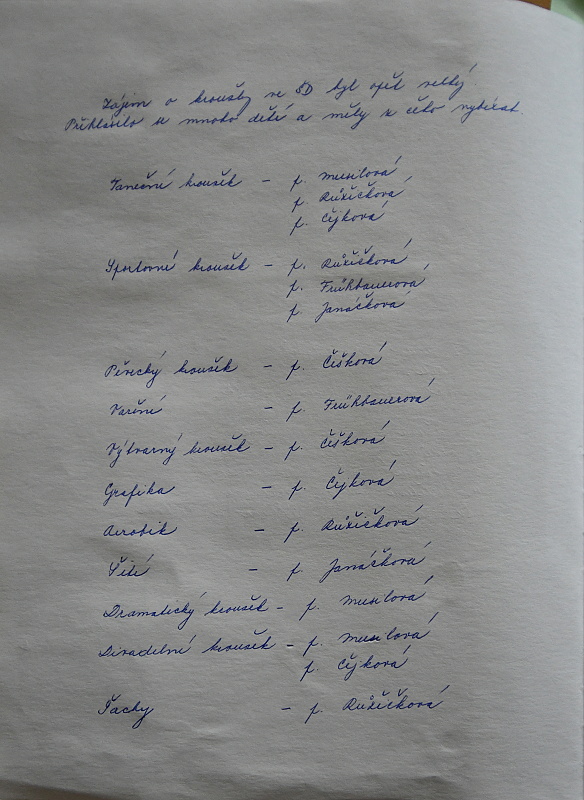 Zájem o kroužky ve ŠD byl opět velký.
Přihlásilo se mnoho dětí a měly z čeho vybírat.
Taneční kroužek - p. Musilová
p. Růžičková
p. Čejková
Sportovní kroužek - p. Růžičková
p. Frühbauerová
p. Janáčková
Pěvecký kroužek - p. Číšková
Vaření - p. Frühbauerová
Výtvarný kroužek - p. Číšková
Grafika - p. Čejková
Aerobik - p. Růžičková
Šití - p. Janáčková
Dramatický kroužek - p. Musilová
Divadelní kroužek - p. Musilová
p. Čejková
Šachy - p. Růžičková